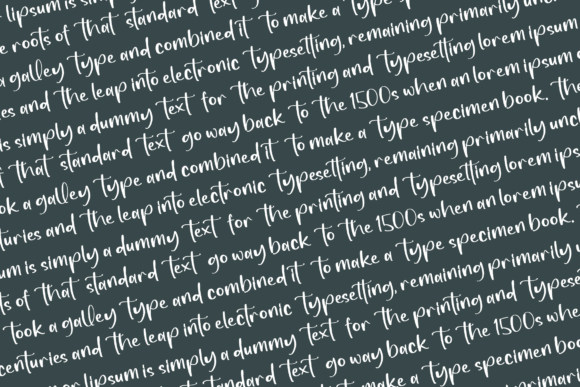 lipsum is
roots of that standard text
a galley type and combined it to make a type
and the leap into electronic typesetting, remaining primarily
is simply a dummy text for the printing and typesetting lorem ipsum
that standard text go way back to the 1500s when an lorem ipsum
ook a galley type and combined it to make a type specimen book. The
turies and the leap into electronic typesetting, remaining primarily unc
um is simply a dummy text for the printing and typesetting lorem ips
ts of that standard text go way back to the 1500s when an lorem ipsu
took a galley type and combined it to make a type specimen book.
centuries and the leap into electronic typesetting, remaining primarily
lipsum is simply a dummy text for the printing and typese
standard text go way back to the 1500s whe
to make a type specimen boo